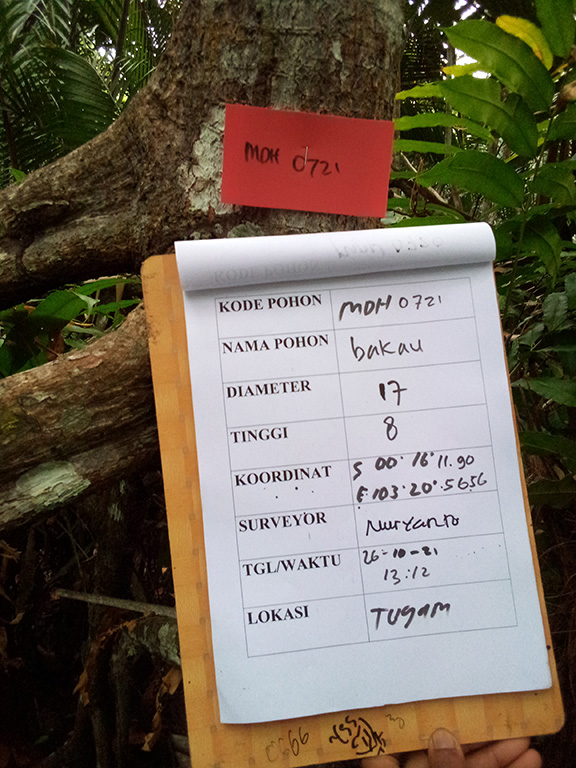 MDH 0721
KODE POHON MDH 0721
NAMA POHON bakau
DIAMETER 17
TINGGI 8
KOORDINAT S 00° 16' 11.90
E 103° 20° 5656
SURVEYOR Nuryanto
TGL/WAKTU 26-10-21
13:12
LOKASI Tugam